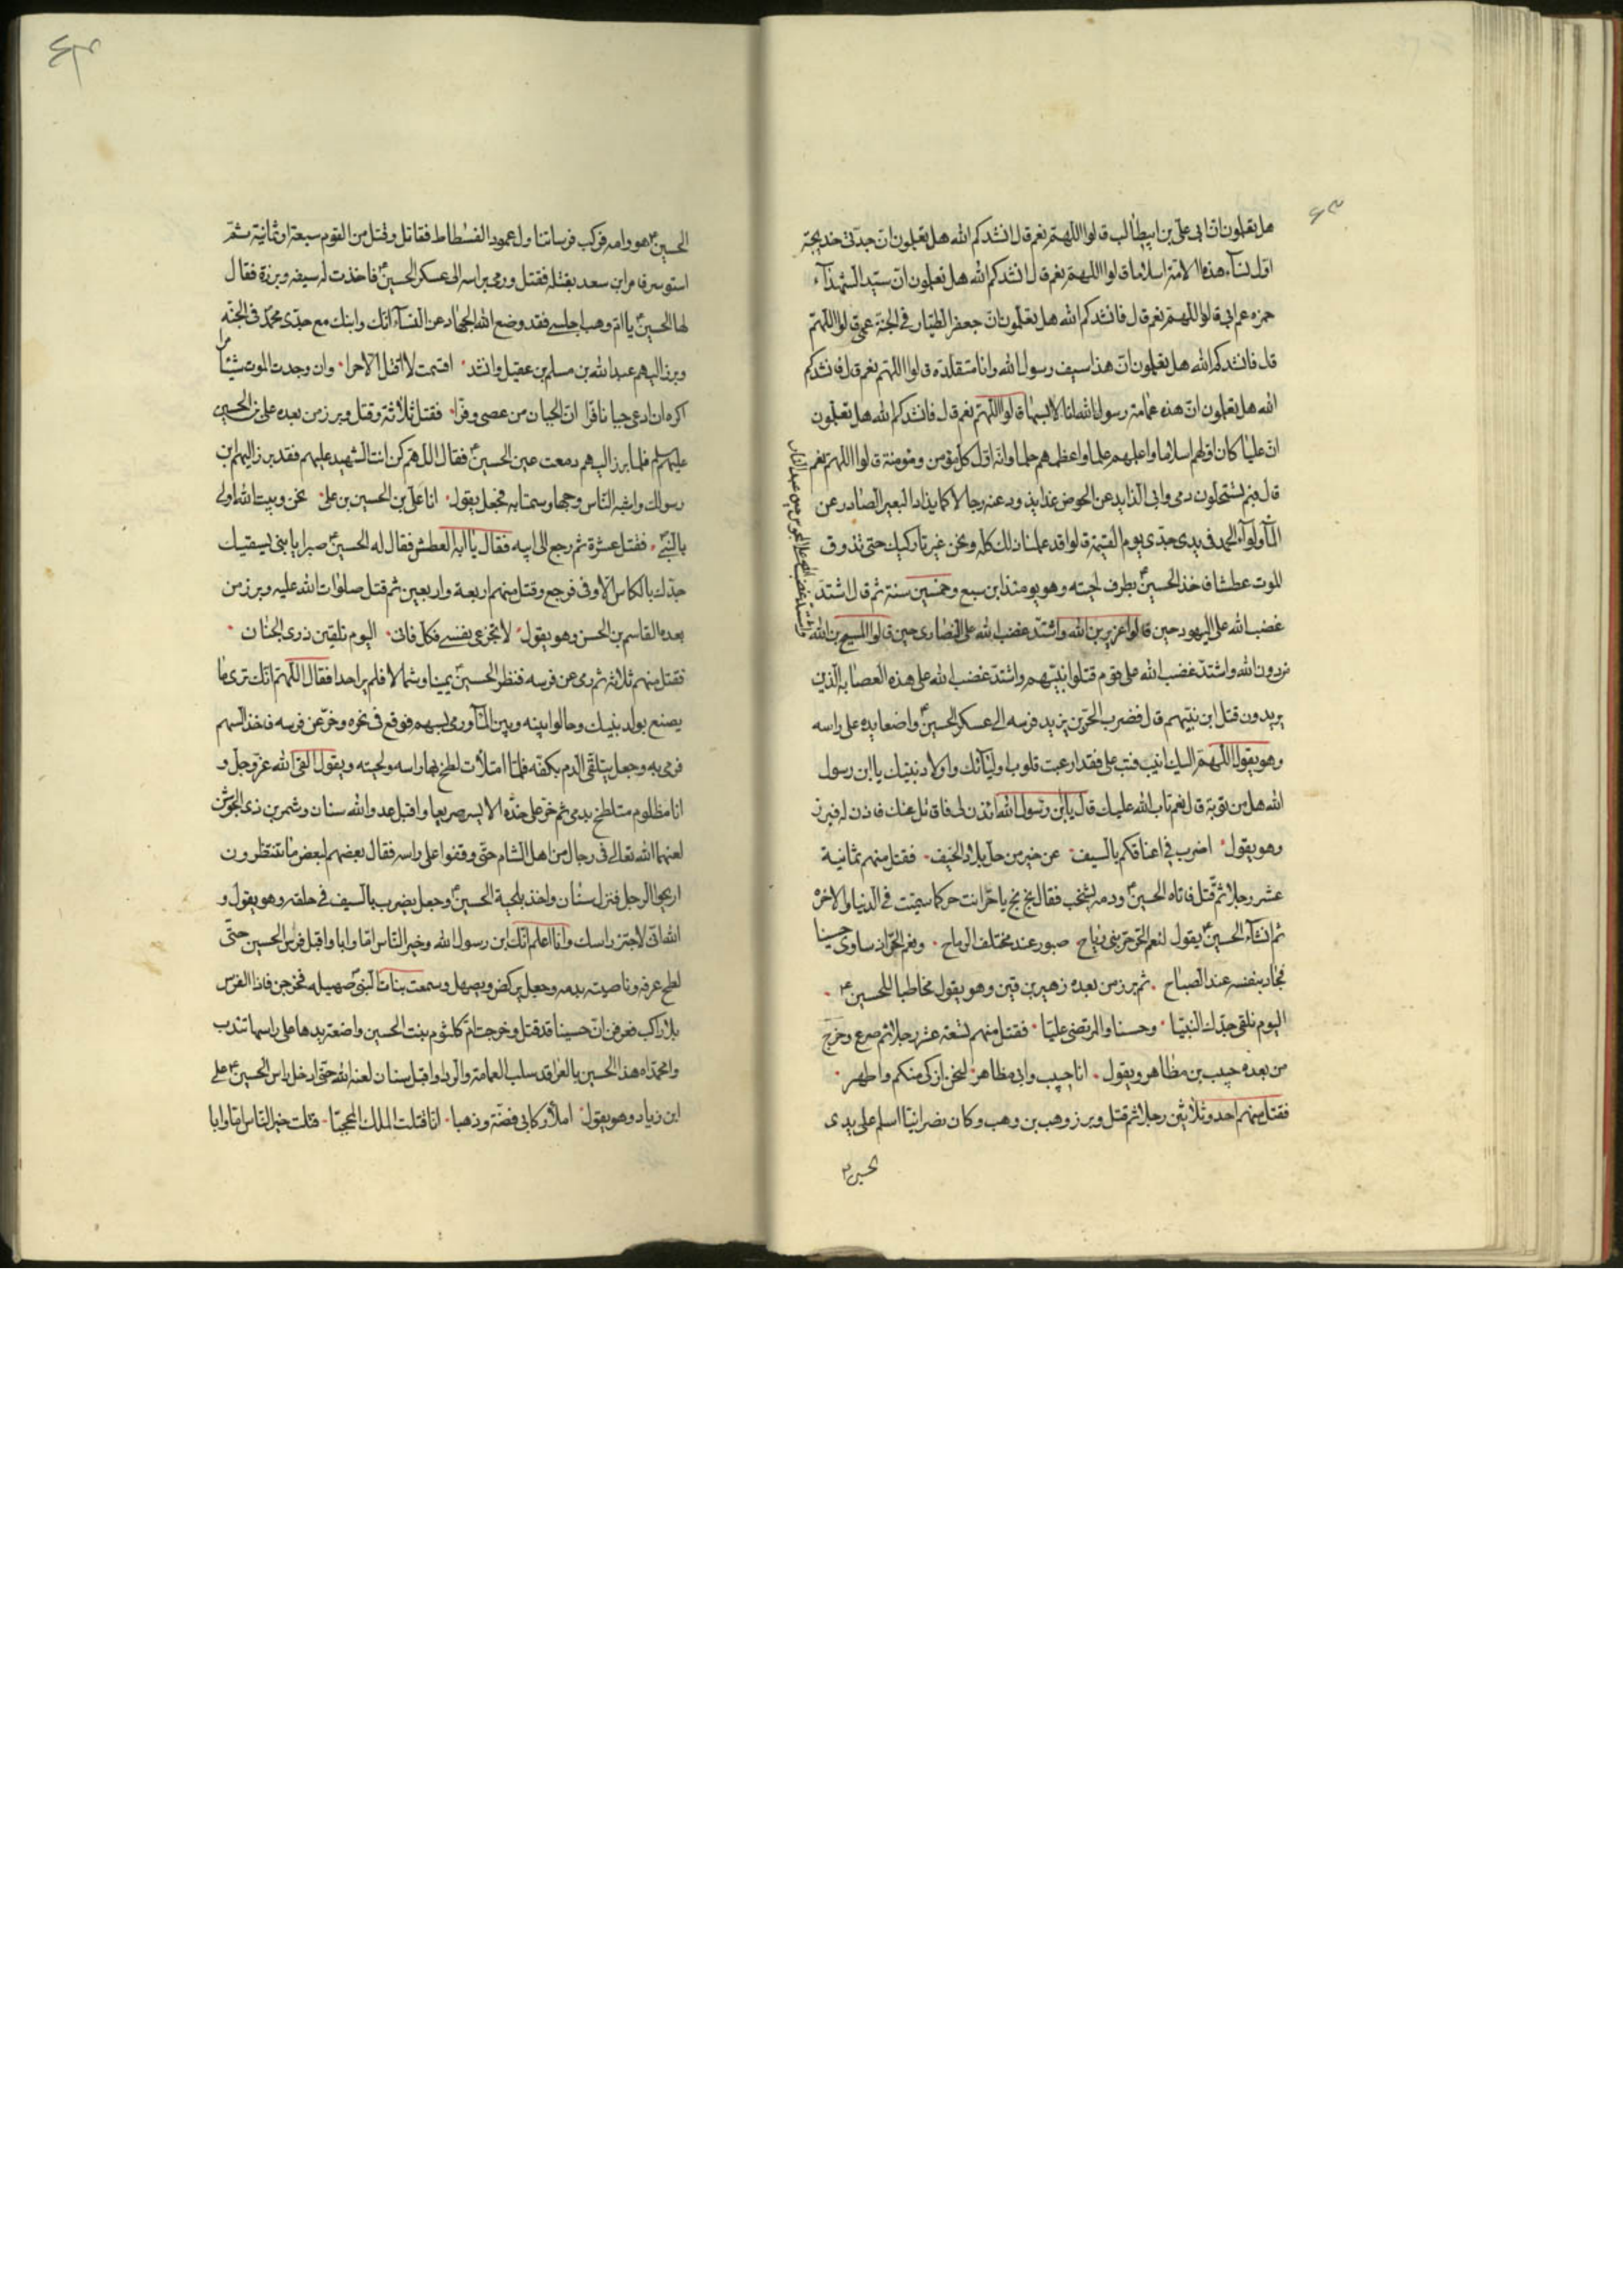 هل تعلمون ان ابى على بن ابيطالب قالوا اللهم نعم قال انشدكم الله هل تعلمون ان جدتى خديجة
اول نسآء هذه الامة اسلاما قالوا اللهم نعم قال انشدكم الله هل تعلمون ان سيد الشهدآء
حمزه عم ابى قالوا اللهم نعم قال فانشدكم الله هل تعلمون ان جعفر الطيار فى الجنة عمى قالوا اللهم
قال فانشدكم الله هل تعلمون ان هذا سيف رسول الله وانا متقلده قالوا اللهم نعم قال فانشدكم
الله هل تعلمون ان هذه عمامة رسول الله انا لابسها قالوا اللهم نعم قال فانشدكم الله هل تعلمون
ان عليا كان اولهم اسلاما واعلمهم علما واعظمهم حلما وانه اول كل مؤمن ومؤمنة قالوا اللهم نعم
قال فبم تستحلون دمى وابى الذايد عن الحوض غدا يذود عنه رجالا كما يذاد البعير الصادر عن
المآء ولوآء الحمد فى يدى جدى يوم القيمة قالوا قد علمنا ذلك كله ونحن غير تاركيك حتى تذوق
الموت عطشا فاخذ الحسين ع بطرف لحيته وهو يومئذ ابن سبع وخمسين سنة ثم قال اشتد
غضب الله على اليهود حين قالوا عزير بن الله واشتد غضب الله على النصارى حين قالوا المسيح بن الله
واشتد غضب الله على المجوس حين عبدوا النار
من دون الله واشتد غضب الله على قوم قتلوا نبيهم واشتد غضب الله على هذه العصابة الذين
يريدون قتل ابن نبيهم قال فضرب الحر بن يزيد فرسه الى عسكر الحسين ع واضعا يده على راسه
وهو يقول اللهم اليك انيب فتب على فقد ارعبت قلوب اوليآئك واولاد نبيك يا ابن رسول
الله هل من توبة قال نعم تاب الله عليك قال يا ابن رسول الله ائذن لى فاقاتل عنك فاذن له فبرز
وهو يقول اضرب فى اعناقكم بالسيف عن خير من حل بلاد الخيف فقتل منهم ثمانية
عشر رجلا ثم قتل فاتاه الحسين ع ودمه يشخب فقال بخ بخ يا حر انت حر كما سميت فى الدنيا والاخره
ثم انشآء الحسين ع يقول لنعم الحر حر بنى رياح صبور عند مختلف الرماح ونعم الحر اذ ساوى حسينا
فجاد بنفسه عند الصباح ثم برز من بعده زهير بن قين وهو يقول مخاطبا للحسين ع
اليوم نلقى جدك النبيا وحسنا والمرتضى عليا فقتل منهم تسعة عشر رجلا ثم صرع وخرج
من بعده حبيب بن مظاهر ويقول انا حبيب وابى مظاهر لنحن ازكى منكم واطهر
فقتل منهم احد وثلاثين رجلا ثم قتل وبرز وهب بن وهب وكان نصرانيا اسلم على يدى
الحسين ع
الحسين ع هو وامه فركب فرسا وتناول عمود الفسطاط فقاتل وقتل من القوم سبعة او ثمانية ثم
استوسر فامر ابن سعد بقتله فقتل ورمى براسه الى عسكر الحسين ع فاخذت له سيفه وبرزة فقال
لها الحسين ع يا ام وهب اجلسى فقد وضع الله الجهاد عن النسآء انك وابنك مع جدى محمد فى الجنه
وبرز اليهم عبد الله بن مسلم بن عقيل وانشد اقسمت لا اقتل الا حرا وان وجدت الموت شيئا مرا
اكره ان ادعى جبانا فرا ان الجبان من عصى وفرا فقتل ثلاثة وقتل وبرز من بعده على بن الحسين
عليهم سلم فلما برز اليهم دمعت عين الحسين ع فقال اللهم كن انت الشهيد عليهم فقد برز اليهم ابن
رسولك واشبه الناس وجها وسمتا به فجعل يقول انا على بن الحسين بن على نحن وبيت الله اولى
بالنبى فقتل عشرة ثم رجع الى ابيه فقال يا ابه العطش فقال له الحسين ع صبرا يا بنى يسقيك
جدك بالكاس الاوفى فرجع وقتل منهم اربعة واربعين ثم قتل صلوات الله عليه وبرز من
بعده القاسم بن الحسن وهو يقول لا تجزعى نفسى فكل فانى اليوم تلقين ذرى الجنان
فقتل منهم ثلاثة ثم رمى عن فرسه فنظر الحسين ع يمينا وشمالا فلم ير احدا فقال اللهم انك ترى ما
يصنع بولد نبيك وحالوا بينه وبين المآء ورمى بسهم فوقع فى نحره وخر عن فرسه فاخذ السهم
فرمى به وجعل يتلقى الدم بكفه فلما امتلأت لطخ بها راسه ولحيته ويقول القى الله عز وجل و
انا مظلوم متلطخ بدمى ثم خر على خده الايسر صريعا واقبل عدو الله سنان وشمر بن ذى الجوشن
لعنهما الله تعالى فى رجال من اهل الشام حتى وقفوا على راسه فقال بعضهم لبعض ما تنتظرون
اريحوا الرجل فنزل سنان واخذ بلحية الحسين ع وجعل يضرب بالسيف فى حلقه وهو يقول و
الله انى لاجتز راسك وانا اعلم انك ابن رسول الله وخير الناس اما وابا واقبل فرس الحسين حتى
لطخ عرفه وناصيته بدمه وجعل يركض ويصهل وسمعت بنات النبى صهيله فخرجن فاذا الفرس
بلا راكب فعرفن ان حسينا قد قتل وخرجت ام كلثوم بنت الحسين واضعة يدها على راسها تندب
وامحمداه هذا الحسين بالعرا قد سلب العمامة والردا واقبل سنان لعنه الله حتى ادخل راس الحسين ع على
ابن زياد وهو يقول املأ ركابى فضة وذهبا انا قتلت الملك المحجبا قتلت خير الناس اما وابا